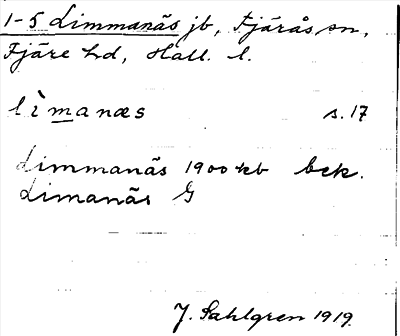 1-5 Limmanäs jb, Fjärås sn,
Fjäre hd, Hall. l.
lìmanæs s. 17
Limmanäs 1900 kb bek.
Limanäs G
J. Sahlgren 1919.